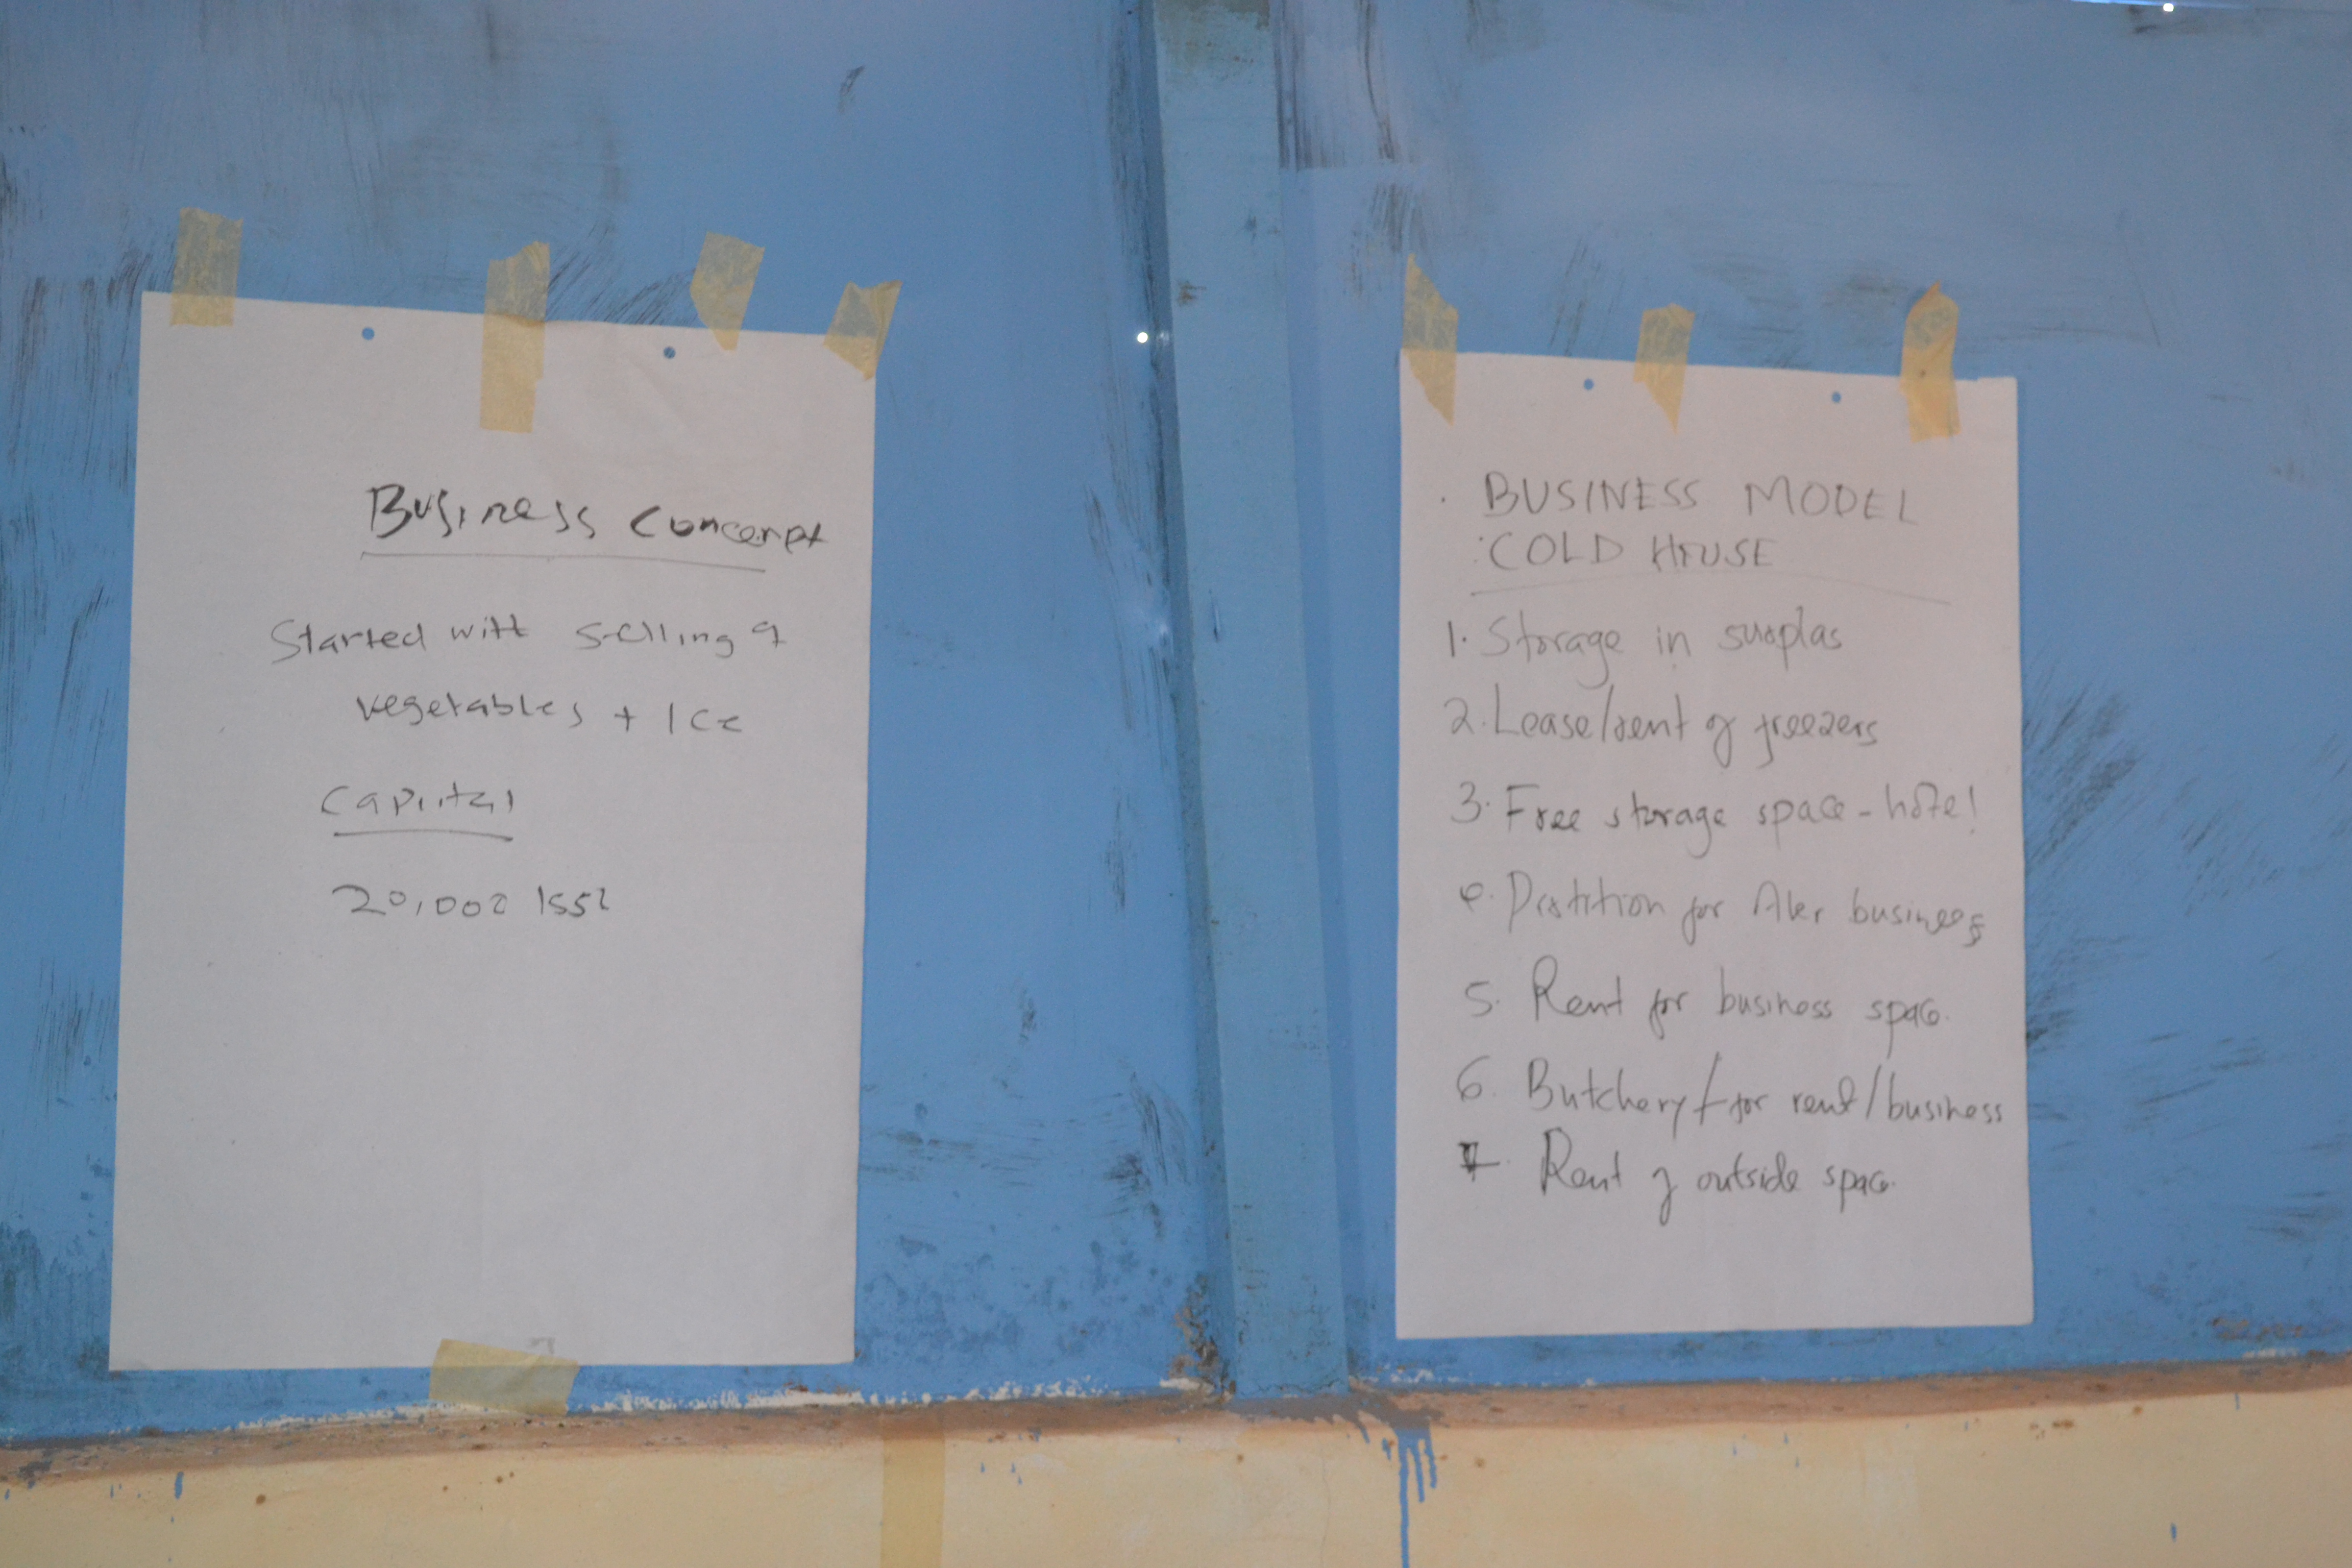 Business Concept
Started with selling of
vegetables + Ice
Capital
20,000
BUSINESS MODEL
COLD HOUSE
1. Storage in surplus
2. Lease/rent of freezers
3. Free storage space -
4. for business
5. Rent for business space
6. Butchery / for rent/business
7. Rent of outside space